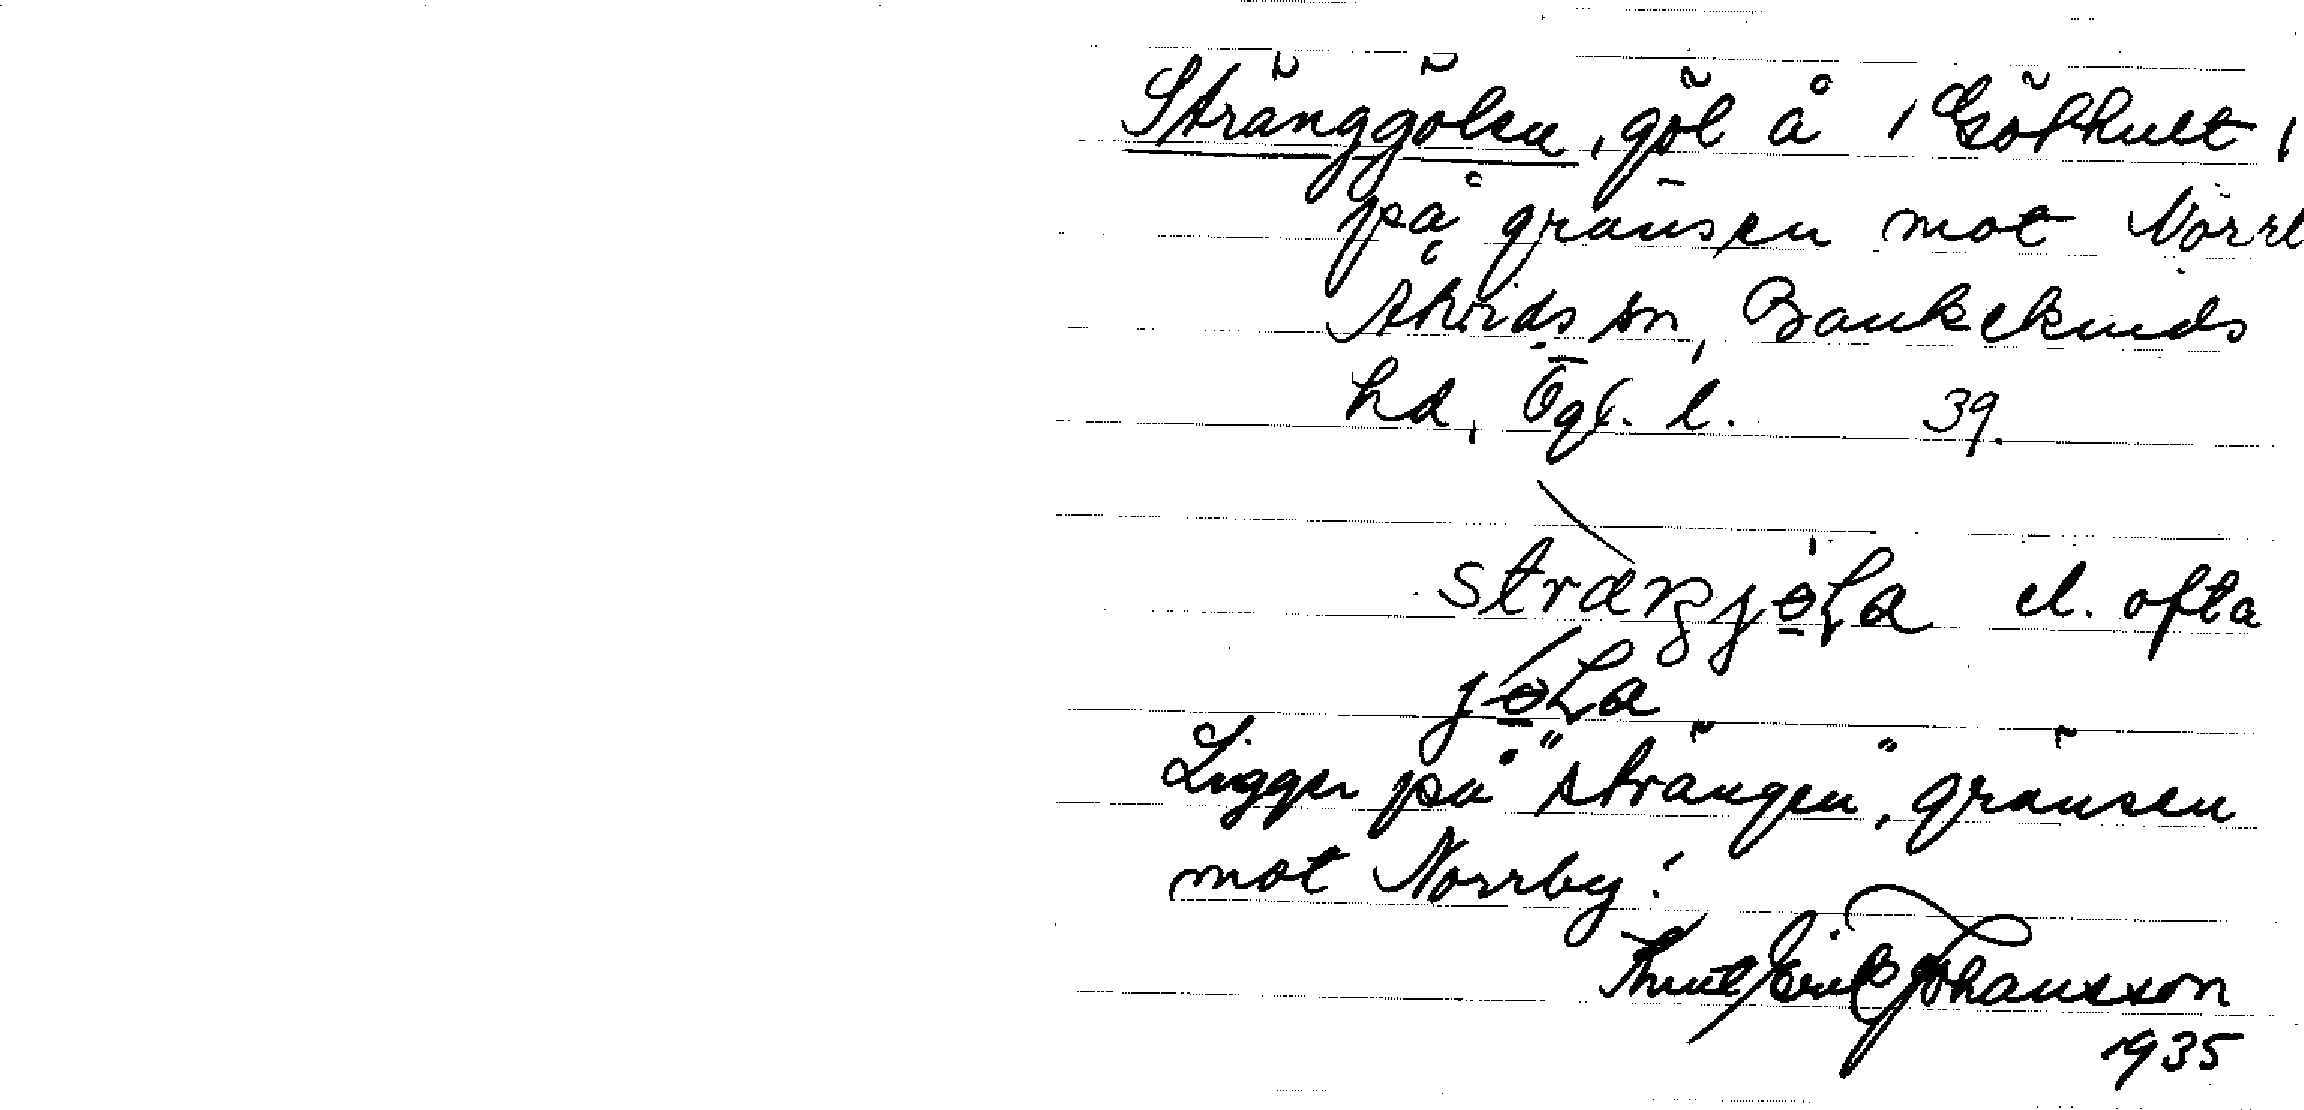 Stränggölen, göl å 1 Gökhult,
på gränsen mot Norrb
Åtvids sn, Bankekinds
hd, Ögl. l. 39.
stræŋjøLa el. ofta
jøLa
Ligger på "strängen", gränsen
mot Norrby!
Thure Erik Johansson
1935